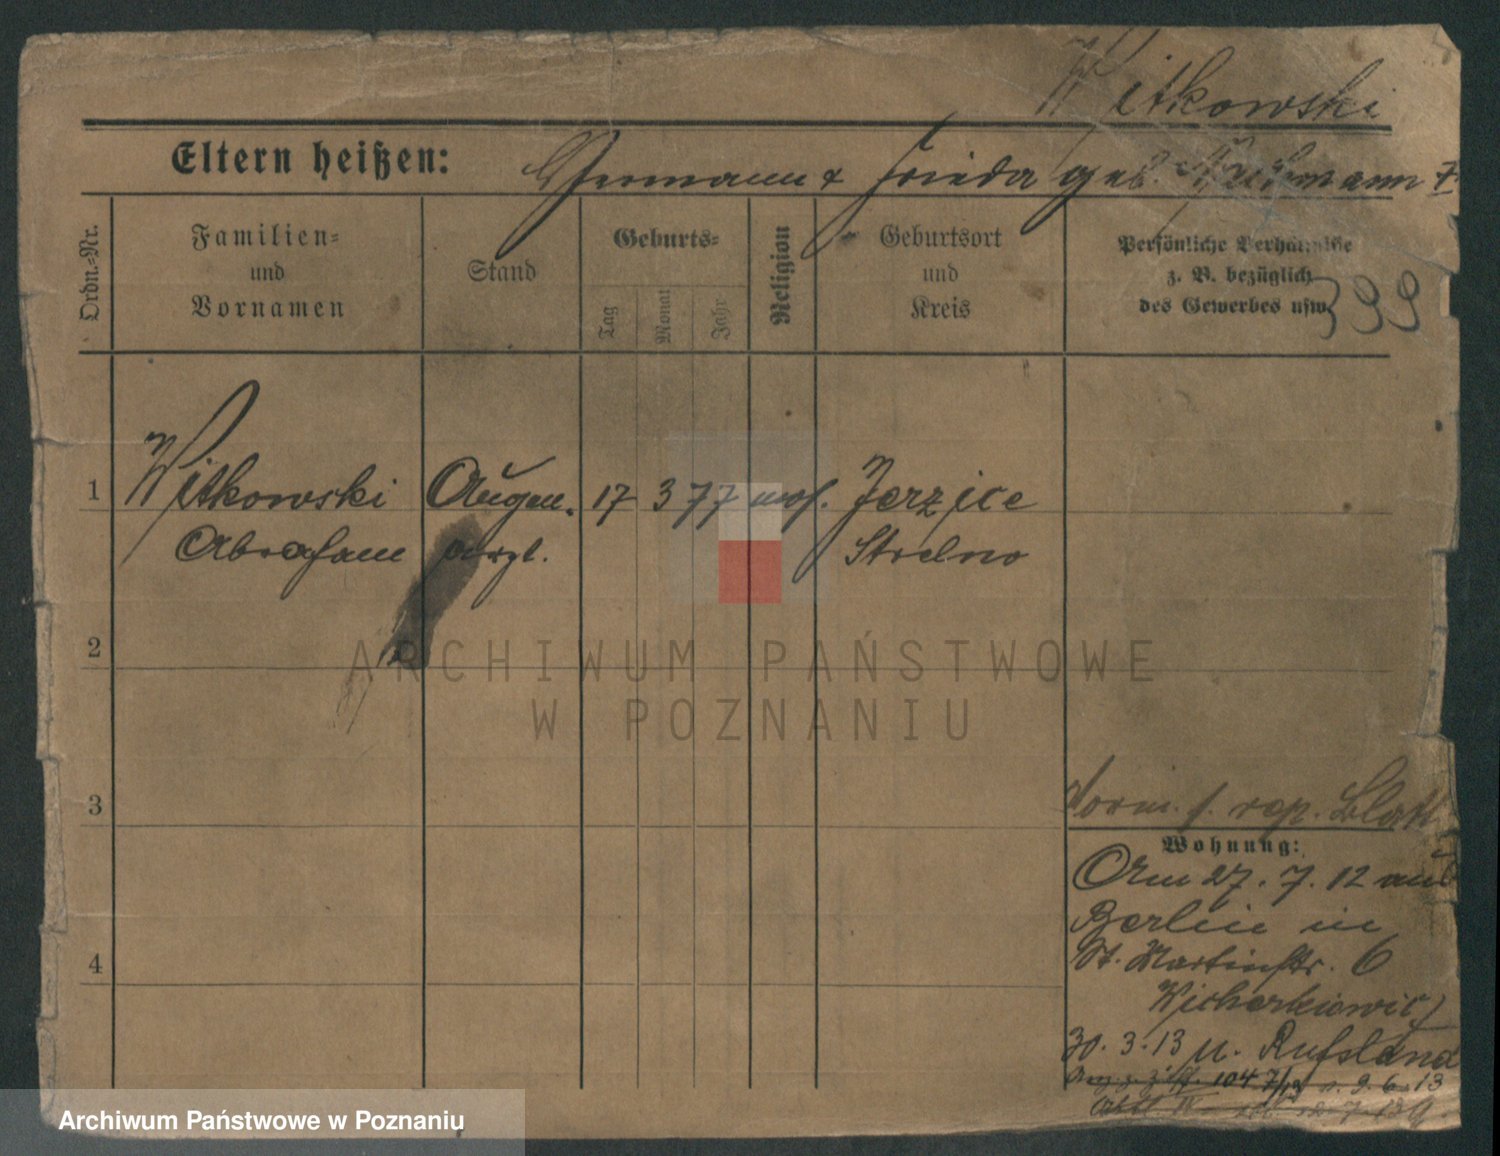 Witkowski
Eltern heißen: Hermann & Frieda geb.
Ordn.=Nr.
Familien=
und
Vornamen
Stand
Geburts=
Tag
Monat
Jahr
Religion
Geburtsort
und
Kreis
Persönliche Verhältnisse
z. B. bezüglich
des Gewerbes usw.
399
1 Witkowski Augen- 17 3 77 mos. Jerzyce
Abraham arzt. Strelno
2
3
4
vorm. f. rep. Blatt
Wohnung:
Am 27. 7. 12 aus
Berlin in
St. Martinstr. 6
Wicherkiewicz
30. 3. 13 n. Russland
1047/13 9. 6. 13
ARCHIWUM PAŃSTWOWE
W POZNANIU
Archiwum Państwowe w Poznaniu